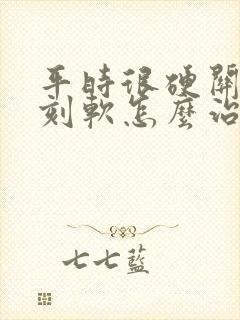 平時很硬關
刻軟怎麼治
七七藍